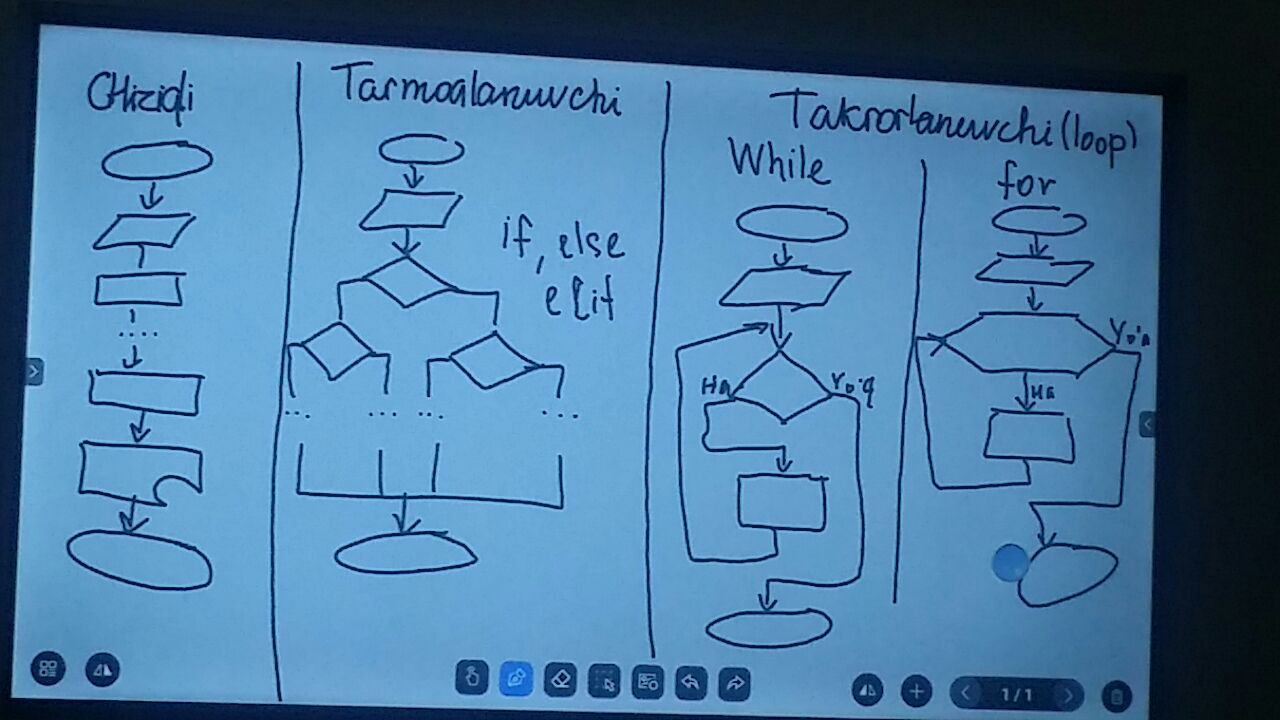 CHiziqli
Tarmoqlanuvchi
if, else
elif
Takrorlanuvchi (loop)
While
Ha
Yo'q
for
Yo'q
Ha
1/1